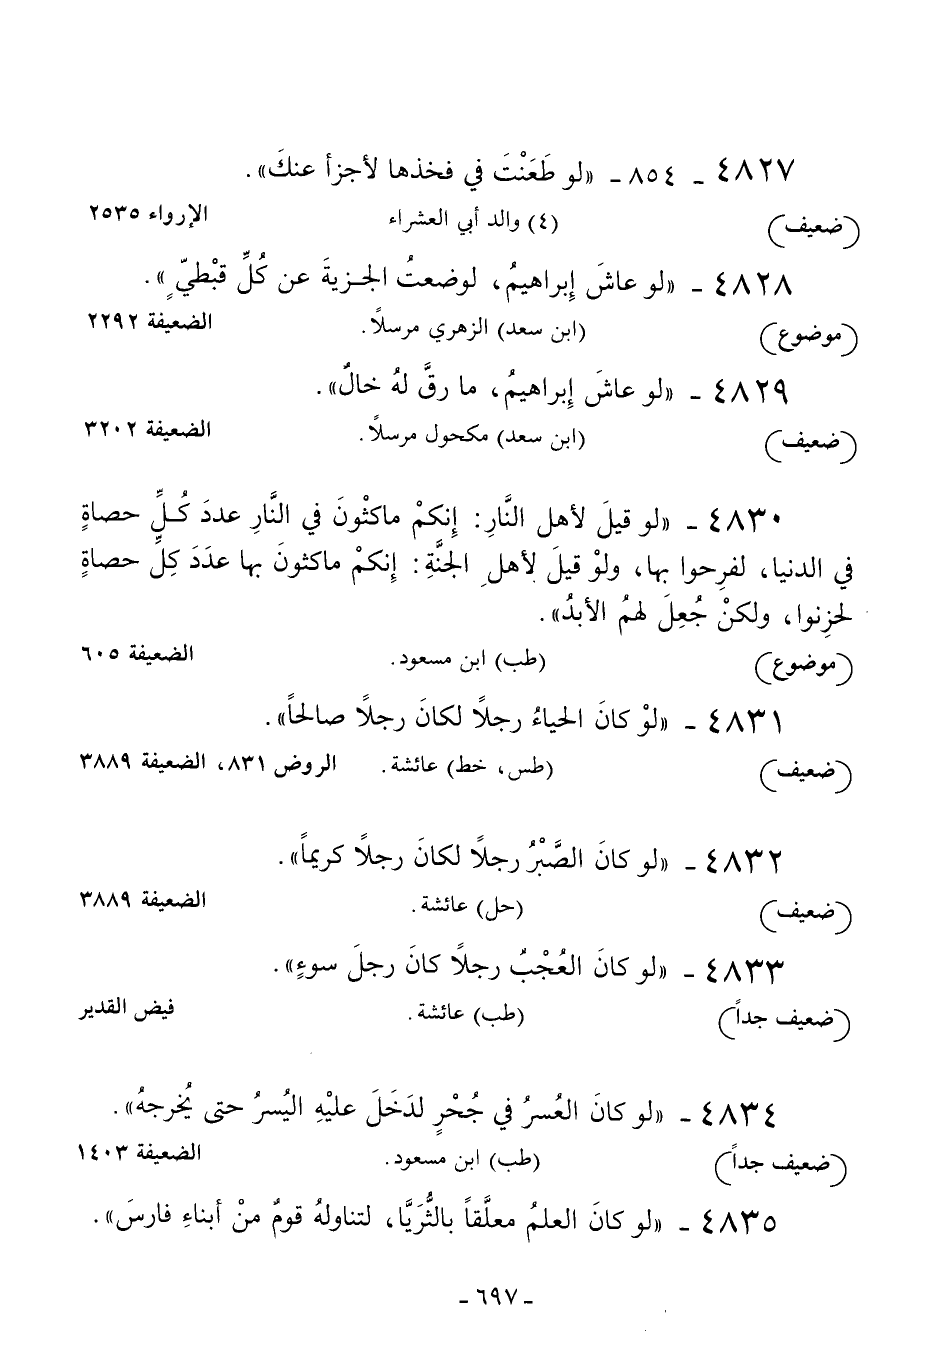 ٤٨٢٧ ـ ٨٥٤ ـ «لو طَعَنْتَ في فخذها لأجزأ عنكَ».
(ضعيف) (٤) والد أبي العشراء الإرواء ٢٥٣٥
٤٨٢٨ ـ «لو عاشَ إِبراهيمُ، لوضعتُ الجـزيةَ عن كُلِّ قبْطيّ ٍ».
(موضوع) (ابن سعد) الزهري مرسلًا. الضعيفة ٢٢٩٢
٤٨٢٩ ـ «لو عاشَ إِبراهيمُ، ما رقَّ لهُ خالٌ».
(ضعيف) (ابن سعد) مكحول مرسلًا. الضعيفة ٣٢٠٢
٤٨٣٠ ـ «لو قيلَ لأهل النَّارِ: إِنكمْ ماكثْونَ في النَّارِ عددَ كُـلِّ حصاةٍ
في الدنيا، لفرِحوا بها، ولوْ قيلَ لأهلِ الجنَّةِ: إِنكمْ ماكثونَ بها عدَدَ كِلِّ حصاةٍ
لحزِنوا، ولكنْ جُعِلَ لهمُ الأبدُ».
(موضوع) (طب) ابن مسعود. الضعيفة ٦٠٥
٤٨٣١ ـ «لوْ كانَ الحياءُ رجلًا لكانَ رجلًا صالحاً».
(ضعيف) (طس، خط) عائشة. الروض ٨٣١، الضعيفة ٣٨٨٩
٤٨٣٢ ـ «لو كانَ الصَّبْرُ رجلًا لكانَ رجلًا كريماً».
(ضعيف) (حل) عائشة. الضعيفة ٣٨٨٩
٤٨٣٣ ـ «لو كانَ العُجْبُ رجلًا كانَ رجلَ سوءٍ».
(ضعيف جداً) (طب) عائشة. فيض القدير
٤٨٣٤ ـ «لو كانَ العُسرُ في جُحْرٍ لدَخَلَ عليْهِ اليُسرُ حتى يُخرجهُ».
(ضعيف جداً) (طب) ابن مسعود. الضعيفة ١٤٠٣
٤٨٣٥ ـ «لو كانَ العلمُ معلَّقاً بالثُّرَيَّا، لتناولهُ قومٌ منْ أبناءِ فارسَ».
ـ ٦٩٧ ـ